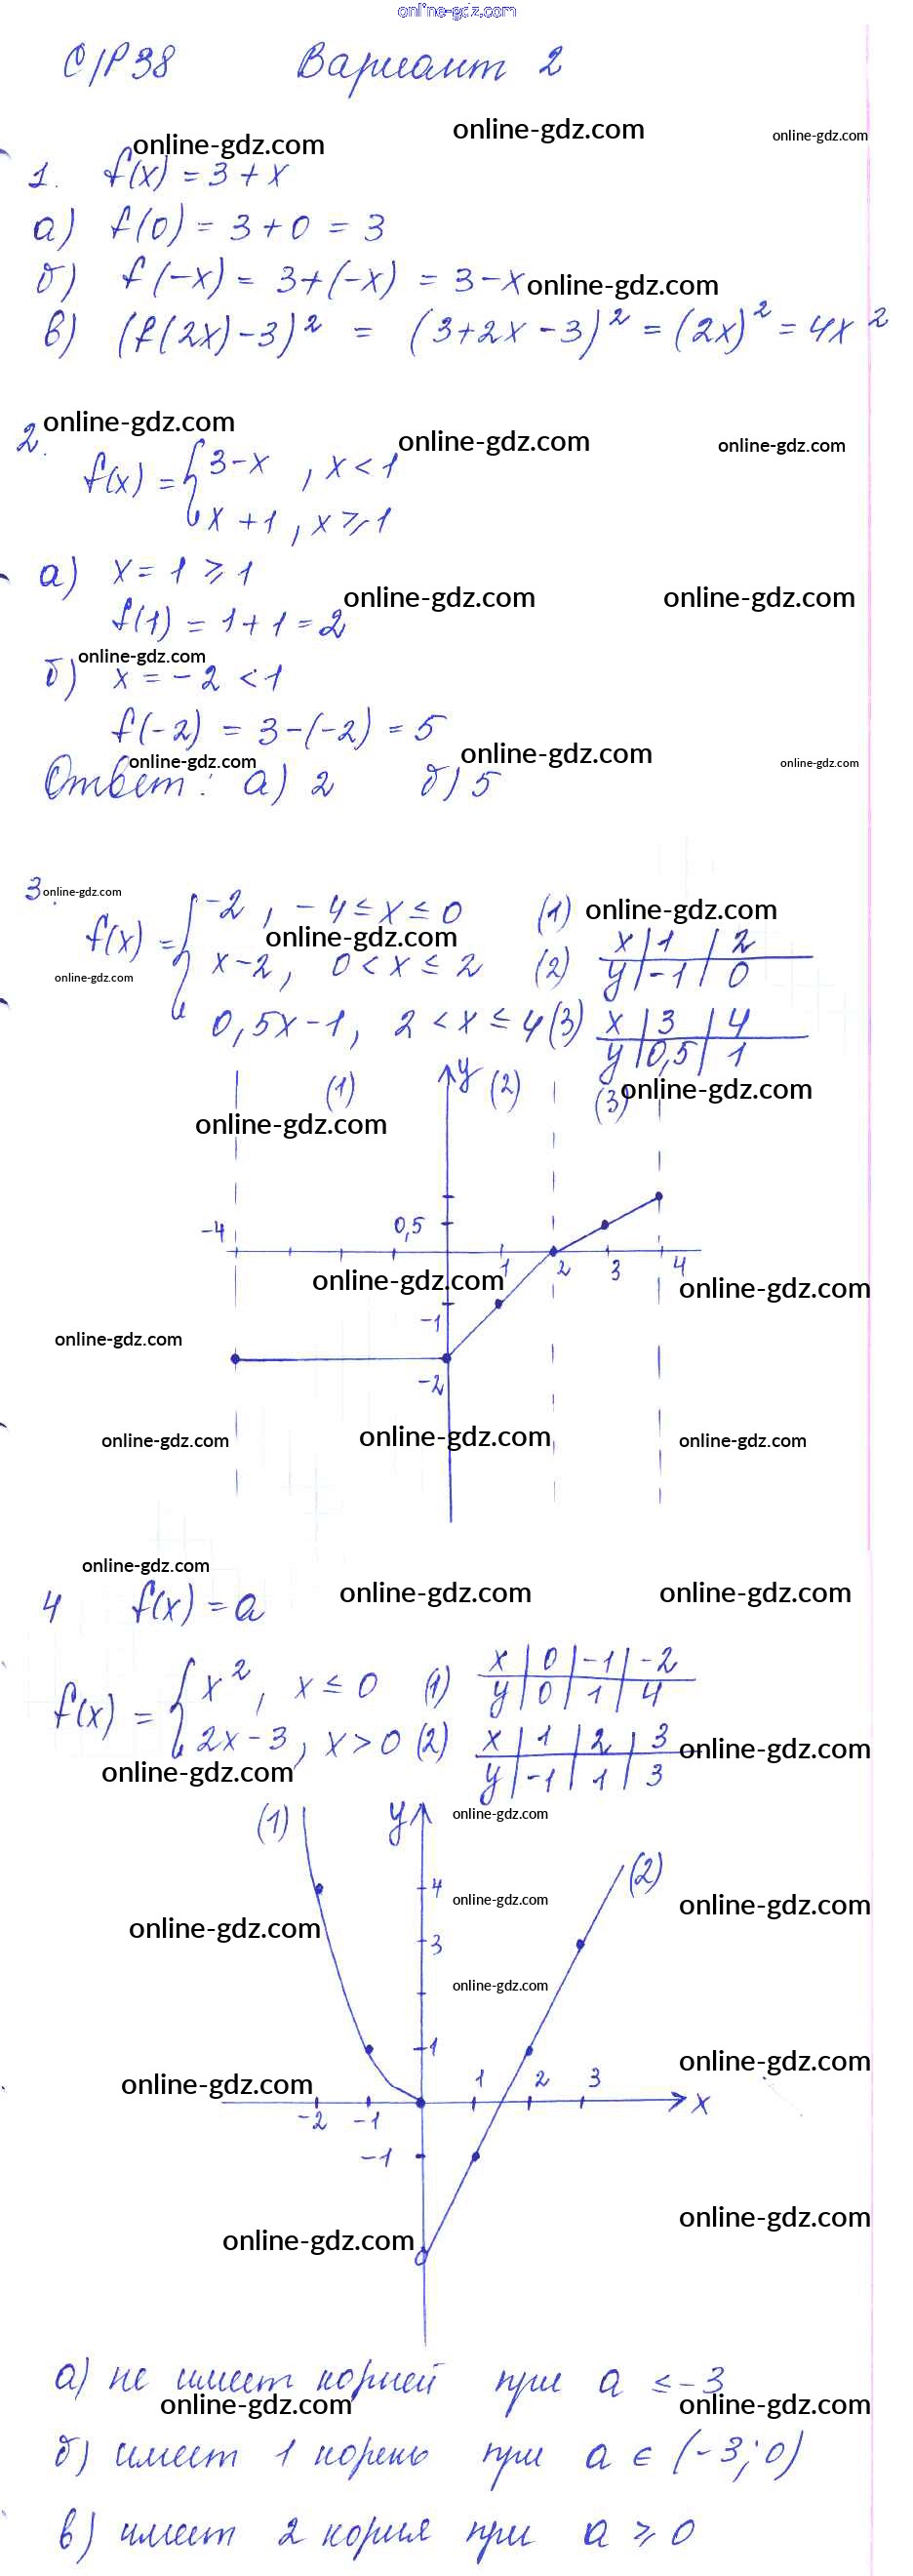 online-gdz.com
С/Р 38 Вариант 2
online-gdz.com online-gdz.com online-gdz.com
1. f(x) = 3 + x
а) f(0) = 3 + 0 = 3
б) f(-x) = 3+(-x) = 3-x online-gdz.com
в) (f(2x)-3)² = (3+2x-3)² = (2x)² = 4x²
online-gdz.com online-gdz.com online-gdz.com
2. f(x) = { 3-x , x < 1
x + 1 , x ≥ 1
а) x = 1 ≥ 1
online-gdz.com online-gdz.com
f(1) = 1 + 1 = 2
online-gdz.com
б) x = -2 < 1
f(-2) = 3-(-2) = 5
online-gdz.com online-gdz.com online-gdz.com
Ответ: а) 2 б) 5
3. online-gdz.com
f(x) = { -2 , -4 ≤ x ≤ 0 (1) online-gdz.com
online-gdz.com
x-2, 0 < x ≤ 2 (2) x | 1 | 2
y | -1 | 0
online-gdz.com
0,5x-1, 2 < x ≤ 4 (3) x | 3 | 4
y | 0,5 | 1
(1) y (2) (3) online-gdz.com
online-gdz.com
-4 0,5
1 2 3 4
online-gdz.com online-gdz.com
-1
online-gdz.com
-2
online-gdz.com online-gdz.com online-gdz.com
online-gdz.com
4 f(x) = a online-gdz.com online-gdz.com
f(x) = { x², x ≤ 0 (1) x | 0 | -1 | -2
y | 0 | 1 | 4
2x-3, x > 0 (2) x | 1 | 2 | 3
y | -1 | 1 | 3
online-gdz.com online-gdz.com
(1) y online-gdz.com
(2)
4 online-gdz.com online-gdz.com
online-gdz.com
3
online-gdz.com
1
online-gdz.com
online-gdz.com 1 2 3
-2 -1 x
-1
online-gdz.com
online-gdz.com
а) не имеет корней при a ≤ -3
online-gdz.com online-gdz.com
б) имеет 1 корень при a ∈ (-3; 0)
в) имеет 2 корня при a ≥ 0